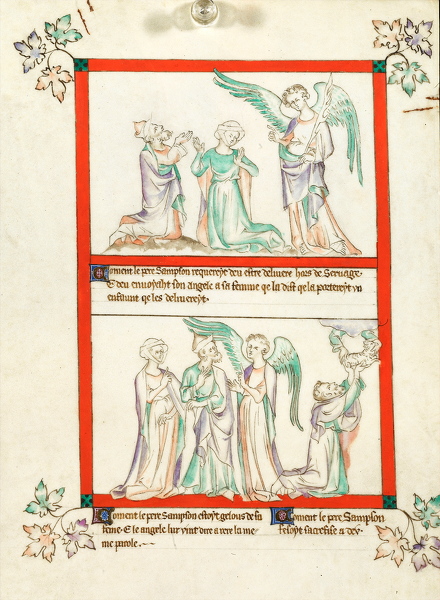 Coment le pere Sampson requereyt deu estre delivere hors de Servage.
E deu envoyaht son angele a sa femme qe la dist qe la portereyt vn
enfaunt qe les delivereyt.
Coment le pere Sampson estoyt gelous de sa
feme. E le angele lur vint dire a rere la me
me parole.
Coment le pere Sampson
fesoyt sacrefise a dev.